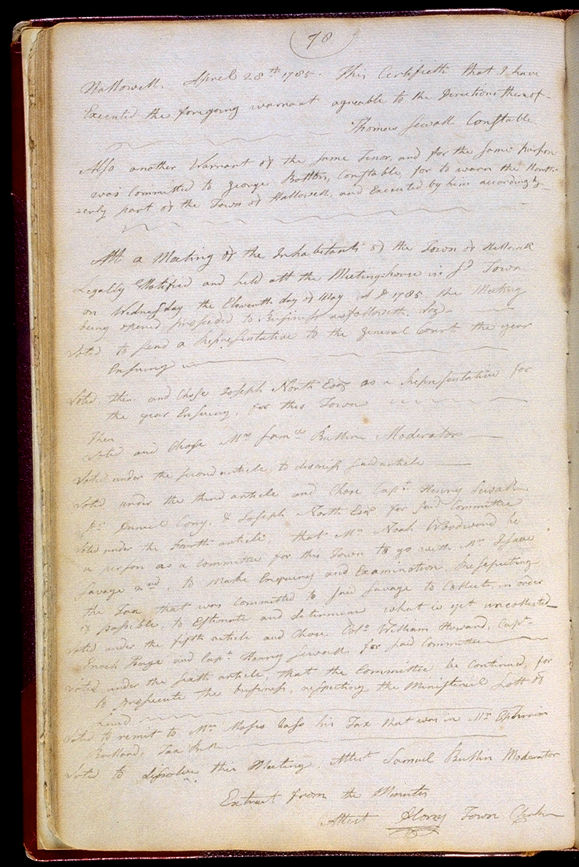 78
Hallowell. April 28th 1785. This Certifieth that I have
Executed the foregoing warrant agreable to the Directions thereof
Thomas Sewall Constable
Also another Warrant of the same Tenor, and for the same purpose
was Committed to George Constable, for to warn the
part of the Town of Hallowell, and Executed by him accordingly
Att a Meeting of the Inhabitants of the Town of Hallowell
Legally Notified and held att the Meeting house in sd Town
on Wednesday the Eleventh day of May A D 1785 the Meeting
being opened proceeded to Business as followeth, (viz)
Voted to send a Representative to the General Court the year
Ensuing
Voted then and Chose Joseph North Esqr as a Representative for
the year Ensuing, for this Town
Then
Voted and Chose Mr Samuel Moderator
Voted under the second article, to dismiss said article
Voted under the third article and Chose Capt. Henry Sewall
Daniel Cony, & Joseph North Esqr for said Committee
Voted under the fourth article, that Mr Noah Woodward be
a person as a Committee for this Town to go with Mr Isaac
Savage 2nd, to Make Enquiry and Examination Respecting
the Tax that was Committed to said Savage to Collect, in order
if possible, to Estimate and determine what is yet uncollected
Voted under the fifth article and Chose Colo William Howard, Capt.
Enoch Page and Capt. Henry Sewall for said Committee
Voted under the sixth article, that the Committee be Continued, for
to prosecute the business, respecting the Ministerial Lott of
Land
Voted to remit to Mr Moses his Tax that was in Mr Ephraim
Tax Bill
Voted to dissolve this Meeting, Attest Samuel Moderator
Extract from the Minutes
Attest Town Clerk